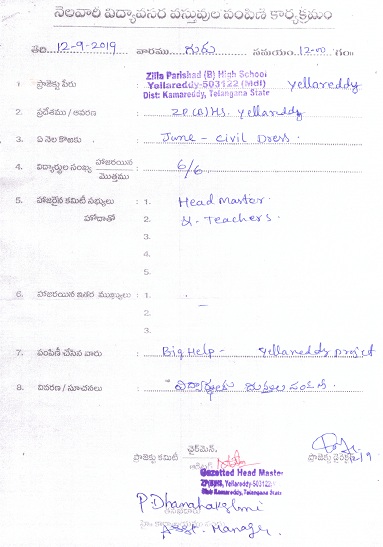 నెలవారీ విద్యావసర వస్తువుల పంపిణీ కార్యక్రమం
తేది 12-9-2019 వారము గురు సమయం 12-00 గం॥
Zilla Parishad (B) High School
1. ప్రాజెక్టు పేరు : Yellareddy-503122 (Mdl) yellareddy
Dist: Kamareddy, Telangana State
2. ప్రదేశము / ఆవరణ : ZP(B)HS. Yellareddy
3. ఏ నెల కొఱకు : June - Civil Dress.
4. విద్యార్థుల సంఖ్య హాజరయిన / మొత్తము : 6/6
5. హాజరైన కమిటీ సభ్యులు : 1. Head Master.
హోదాతో 2. & Teachers.
3.
4.
5.
6. హాజరయిన ఇతర ముఖ్యులు : 1.
2.
3.
7. పంపిణీ చేసిన వారు : Big Help - Yellareddy project
8. వివరణ / సూచనలు : విద్యార్థులకు దుస్తుల పంపిణి.
ఛైర్మెన్,
ప్రాజెక్టు కమిటీ ప్రాజెక్టు
Gazetted Head Master
ZPHS(B), Yellareddy-503122
Dist: Kamareddy, Telangana State
P Dhanalakshmi
Asst. Manager.